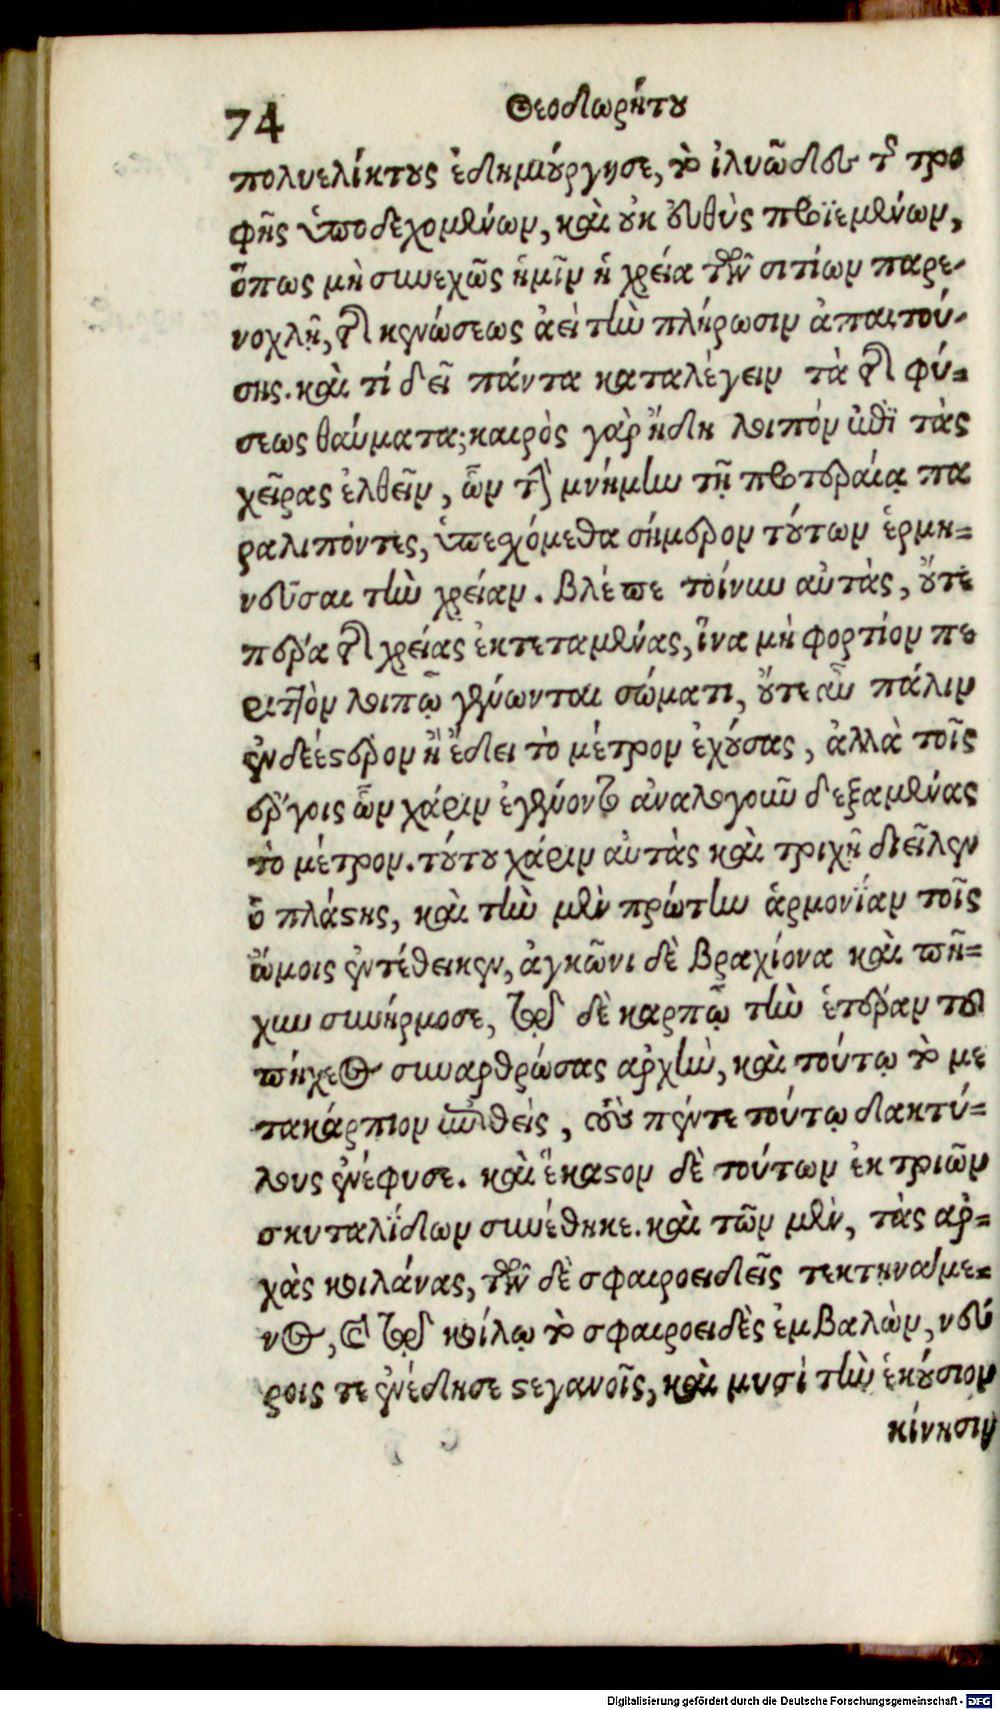 74
Θεοδωρήτου
πολυελίκτους ἐδημιούργησε, τὸ ἰλυῶδες τῆς τρο
φῆς ὑποδεχομένων, καὶ οὐκ εὐθὺς προϊεμένων,
ὅπως μὴ συνεχῶς ἡμῖν ἡ χρεία τῶν σιτίων παρε-
νοχλῇ, τῆς κενώσεως ἀεὶ τὴν πλήρωσιν ἀπαιτού-
σης. καὶ τί δεῖ πάντα καταλέγειν τὰ τῆς φύ-
σεως θαύματα; καιρὸς γὰρ ἤδη λοιπὸν ἐπὶ τὰς
χεῖρας ἐλθεῖν, ὧν τὴν μνήμην τῇ προτεραίᾳ πα
ραλιπόντες, ὑπεχόμεθα σήμερον τούτων ἑρμη-
νεῦσαι τὴν χρείαν. Βλέπε τοίνυν αὐτὰς, οὔτε
πέρα τῆς χρείας ἐκτεταμένας, ἵνα μὴ φορτίον πε
ριττὸν λοιπῷ γένωνται σώματι, οὔτε αὖ πάλιν
ἐνδεέστερον ἢ ἔδει τὸ μέτρον ἐχούσας, ἀλλὰ τοῖς
ἔργοις ὧν χάριν ἐγένοντο ἀναλογοῦν δεξαμένας
τὸ μέτρον. τούτου χάριν αὐτὰς καὶ τριχῇ διεῖλεν
ὁ πλάστης, καὶ τὴν μὲν πρώτην ἁρμονίαν τοῖς
ὤμοις ἐντέθεικεν, ἀγκῶνι δὲ βραχίονα καὶ πῆ-
χυν συνήρμοσε, τῷ δὲ καρπῷ τὴν ἑτέραν τοῦ
πήχεος συναρθρώσας ἀρχὴν, καὶ τούτῳ τὸ με
τακάρπιον ἐπιθεὶς, τοὺς πέντε τούτῳ δακτύ-
λους ἐνέφυσε. καὶ ἕκαστον δὲ τούτων ἐκ τριῶν
σκυταλίδων συνέθηκε. καὶ τῶν μὲν, τὰς ἀρ-
χὰς κοιλάνας, τῶν δὲ σφαιροειδεῖς τεκτηνάμε-
νος, καὶ τῷ κοίλῳ τὸ σφαιροειδὲς ἐμβαλὼν, νεύ
ροις τε ἐνέδησε στεγανοῖς, καὶ μυσὶ τὴν ἑκούσιον
κίνησιν
Digitalisierung gefördert durch die Deutsche Forschungsgemeinschaft - DFG